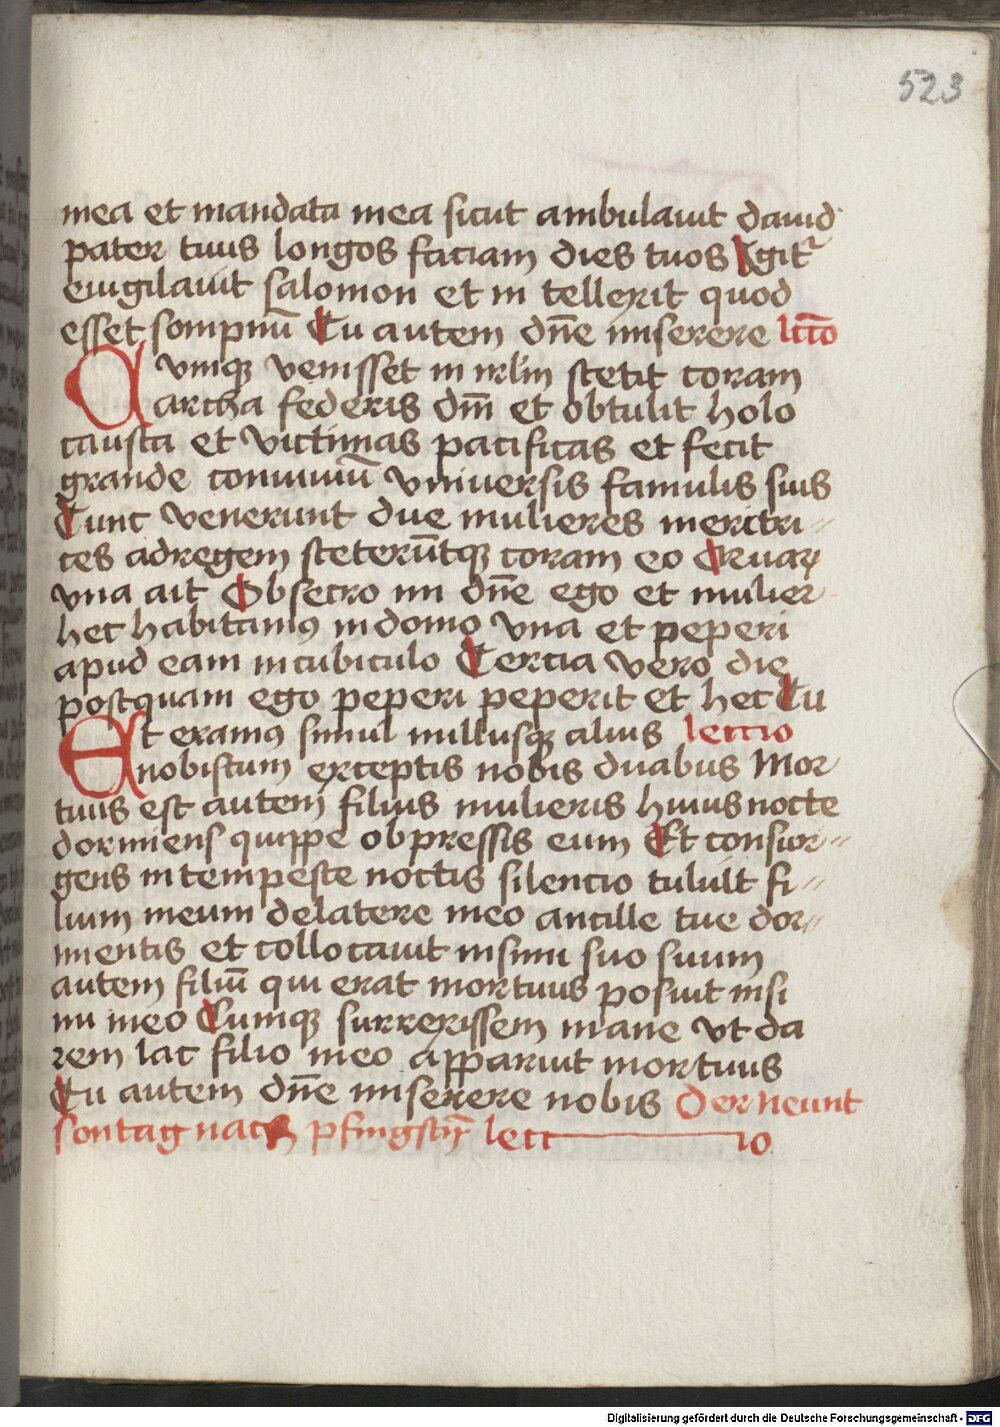 523
mea et mandata mea sicut ambulauit dauid
pater tuus longos faciam dies tuos Igit᷑
euigilauit salomon et in tellexit quod
esset sompnū Tu autem dn̄e miserere lcc̄o
Cumque venisset in irl̄m stetit coram
archa federis dn̄i et obtulit holo
causta et victimas pacificas et fecit
grande conuiuiū vniuersis famulis suis
Tunc venerunt due mulieres meretri//
ces adregem steterūtqꝫ coram eo Quaꝝ
vna ait Obsecro mi dn̄e ego et mulier
hec habitamꝯ indomo vna et peperi
apud eam incubiculo Tercia vero die
postquam ego peperi peperit et hec Tu
Et eramꝯ simul nullusqꝫ alius lectio
nobiscum exceptis nobis duabus Mor
tuus est autem filius mulieris huius nocte
dormiens quippe obpressis eum Et consur//
gens intempeste noctis silencio tulult fi//
lium meum delatere meo ancille tue dor//
mientis et collocauit insinu suo suum
autem filiū qui erat mortuus posuit insi
nu meo Cumqꝫ surrexissem mane vt da
rem lac filio meo appariut mortuus
Tu autem dn̄e miserere nobis Der neunt
sontag nach pfingstn̄ lect io
Digitalisierung gefördert durch die Deutsche Forschungsgemeinschaft - DFG